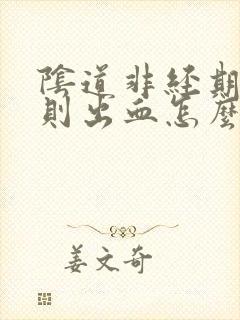 陰道非經期
則出血怎麼
姜文奇